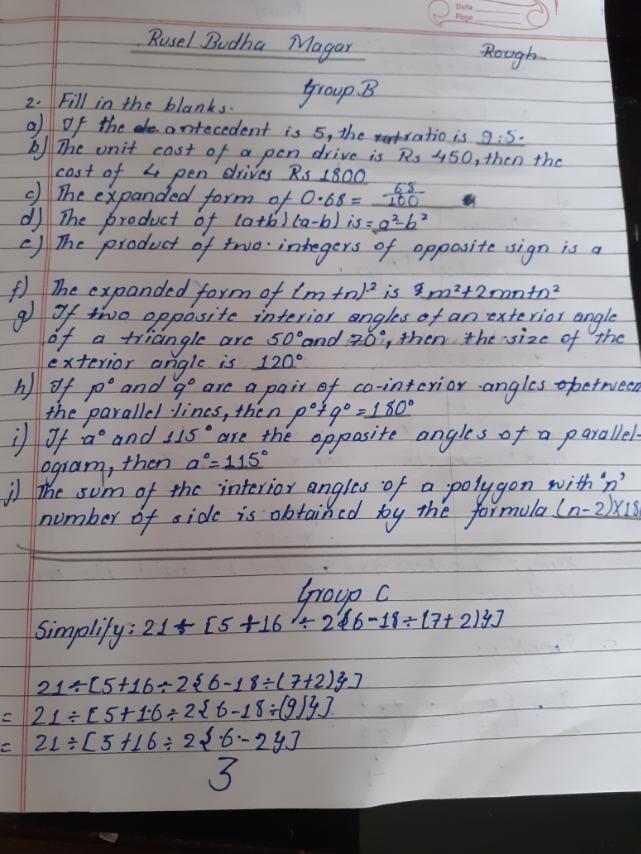 Date
Page
Rusel Budha Magar Rough
Group B
2. Fill in the blanks.
a) If the antecedent is 5, the ratio is 9:5.
b) The unit cost of a pen drive is Rs 450, then the
cost of 4 pen drives Rs 1800
c) The expanded form of 0.68 = 68/100
d) The product of (a+b) (a-b) is = a²-b²
e) The product of two integers of opposite sign is a
f) The expanded form of (m+n)² is m²+2mn+n²
g) If two opposite interior angles of an exterior angle
of a triangle are 50° and 70°, then the size of the
exterior angle is 120°
h) If p° and q° are a pair of co-interior angles between
the parallel lines, then p°+q° = 180°
i) If a° and 115° are the opposite angles of a parallel-
ogram, then a° = 115°
j) The sum of the interior angles of a polygon with 'n'
number of side is obtained by the formula (n-2)×18
Group C
Simplify: 21 ÷ [5+16 ÷ 2{6-18÷(7+2)}]
21÷[5+16÷2{6-18÷(7+2)}]
= 21÷[5+16÷2{6-18÷(9)}]
= 21÷[5+16÷2{6-2}]
3